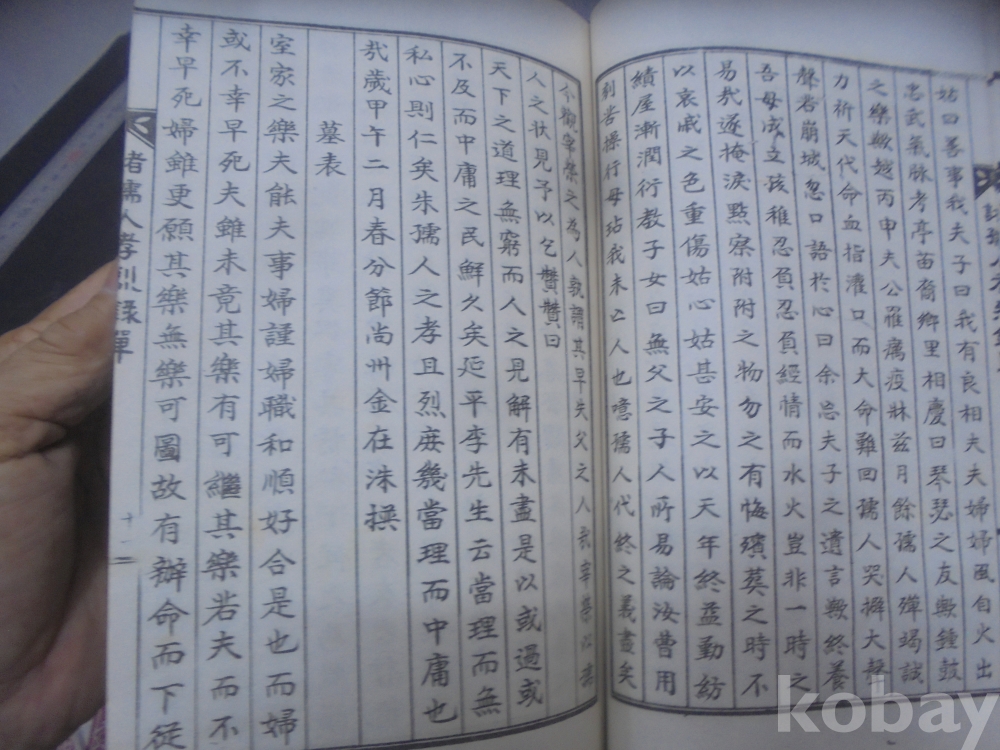 姑曰善事我夫子曰我有良相夫夫婦婦風自火出
忠武氣脉考亭苗裔鄉里相慶曰琴瑟之友歟鍾鼓
之樂歟越丙申夫公罹癘疫牀玆月餘孺人殫竭誠
力祈天代命血指灌口而大命難回孺人哭擗大聲
聲若崩城忍口語於心曰余忘夫子之遺言歟終養
吾母成立孩稚忍負忍負經情而水火豈非一時之
易哉遂掩淚點察附附之物勿之有悔殯葬之時不
以哀戚之色重傷姑心姑甚安之以天年終益勤紡
績屋漸潤行教子女曰無父之子人所易論汝曹用
刻苦操行毋玷我未亡人也噫孺人代終之義盡矣
今觀宰榮之為人孰謂其早失父之人哉宰榮以其
人之狀見予以乞贊贊曰
天下之道理無窮而人之見解有未盡是以或過或
不及而中庸之民鮮久矣延平李先生云當理而無
私心則仁矣朱孺人之孝且烈庶幾當理而中庸也
哉歲甲午二月春分節尚州金在洙撰
墓表
室家之樂夫能夫事婦謹婦職和順好合是也而婦
或不幸早死夫雖未竟其樂有可繼其樂若夫而不
幸早死婦雖更願其樂無樂可圖故有辦命而下從
孺人孝烈錄單
十二
kobay